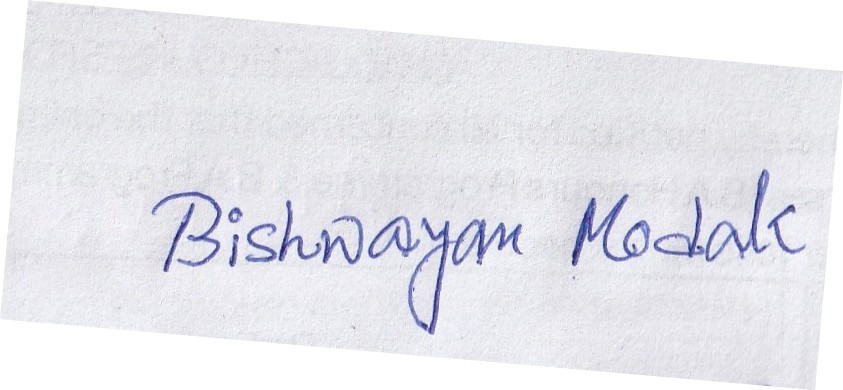 Bishwayan Modak